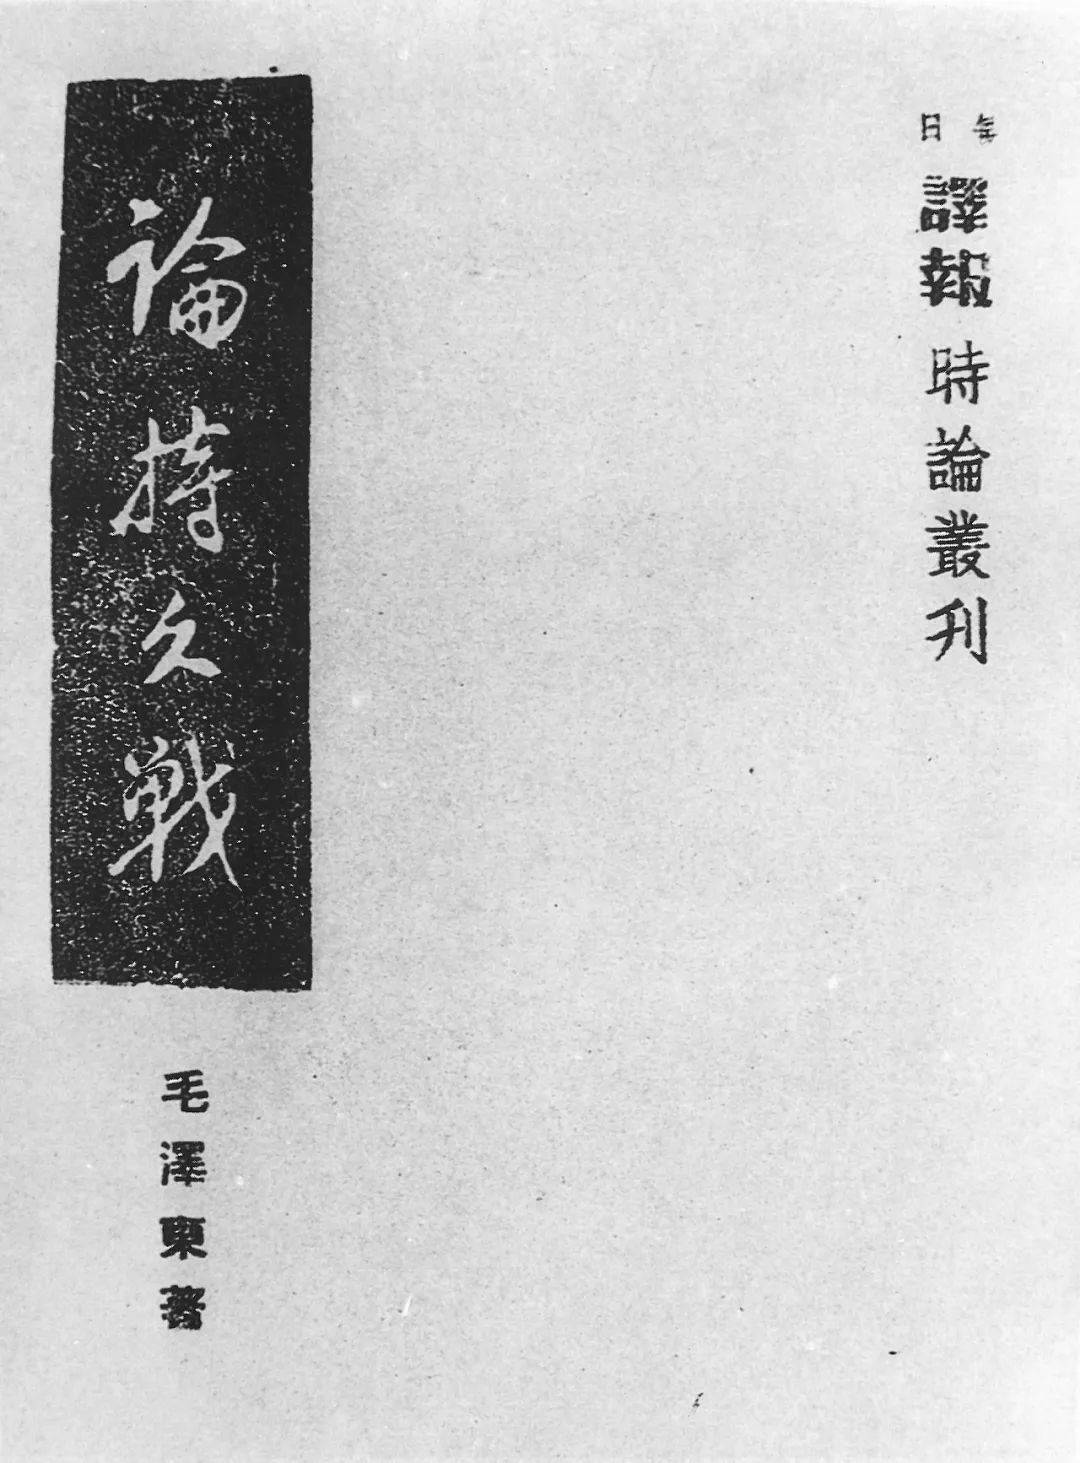 每日
譯報時論叢刊
論持久戰
毛澤東著